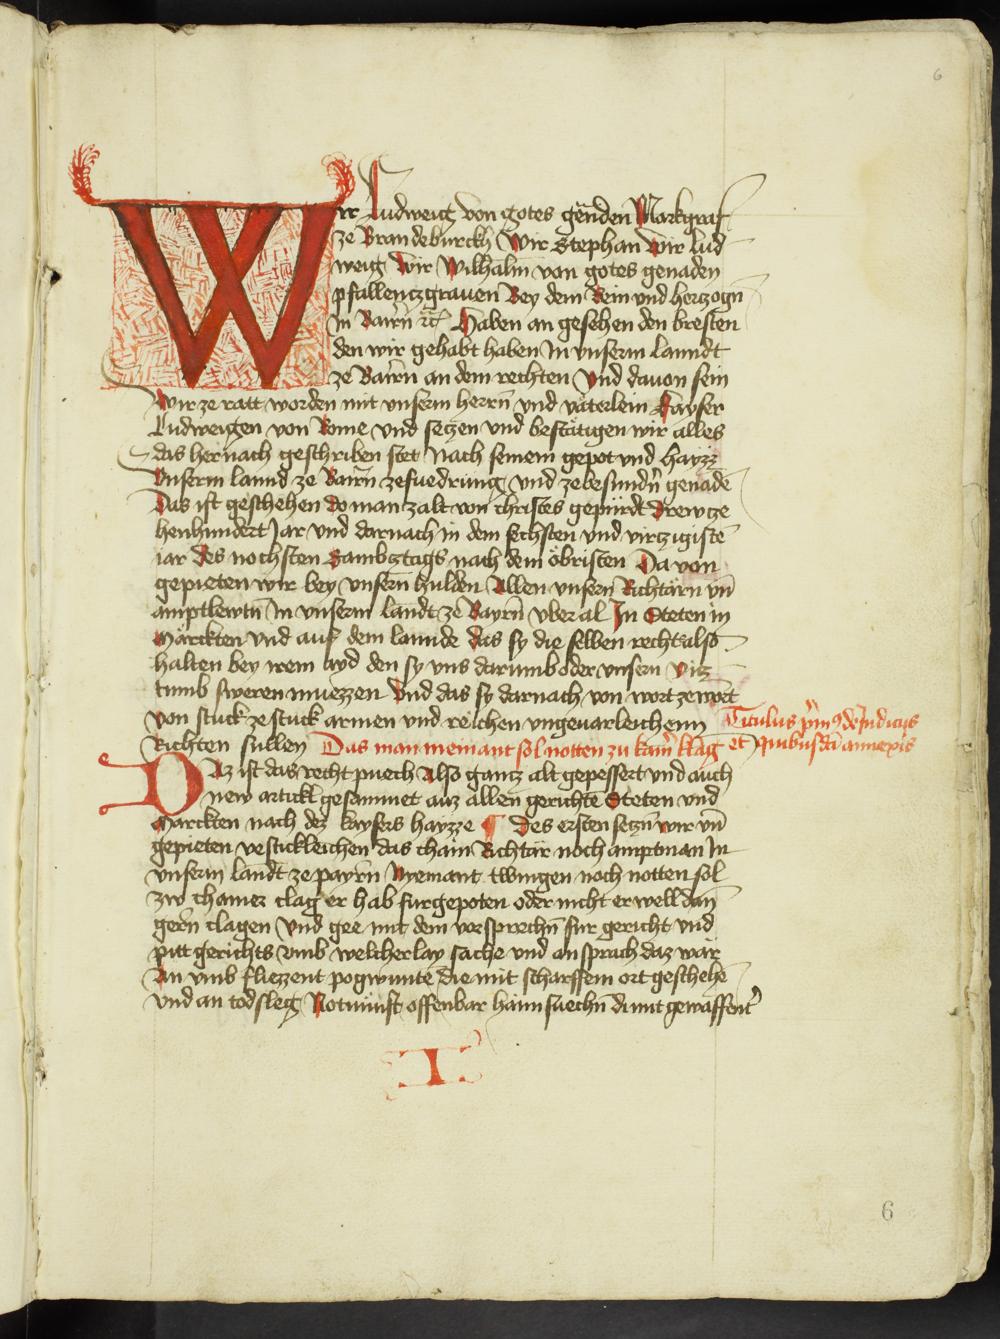 6
Wir Ludweig von gotes genden Markgraf
ze Brandeburckh Wir Stephan Wir Lud
weig Wir Wilhalm von gotes genaden
pfallenczgrauen Bey dem Rein und hertzogn
In Bairn etc̄ Haben an gesehen den bresten
den wir gehabt haben In vnserm lanndt
ze Bairn an dem rechten Vnd dauon sein
Wir ze ratt worden mit vnserm herrn vnd väterlein kayser
Ludweigen von Rome vnd setzen vnd bestätigen wir alles
das hernach geschriben stet Nach seinem gepot vnd hayzz
Vnserm lannd ze Bairn zefuedrung vnd zebesundn̄ genade
Das ist geschehen do man zalt von christes gepürdt Drewze
henhundert Jar vnd darnach in dem sechsten vnd virtzigistē
iar des nochsten Sambztags nach dem öbristen Da von
gepieten wir bey vnsern hulden Allen vnsern Richtärn vn̄
amptlewtn̄ In vnserm landt ze Bayrn̄ vber al In Steten in
Märckten vnd auf dem lannde das sy die selben recht also
halten bey irem ayd den sy vns darumb oder vnsern Vitz
tumb sweren muezzen Vnd das sy darnach von wort ze wort
von stuck ze stuck armen vnd reichen vngeuarleichenn
Richten sullen Das man niemant sol notten zu kainr klag
Titulus
et quibusdā annexis
Daz ist das recht puech Also gantz alt gepessert vnd auch
new artickl gesammet auz allen gerichtē Steten vnd
Marckten nach dez kaysers hayzze ¶ Des ersten setzn̄ wir vn̄
gepieten vestickleichen das chain Richtär noch amptman In
vnserm landt ze payrn̄ Nyemant twingen noch notten sol
zw chainer clag er hab furgepoten oder nicht er well dan̄
gern̄ clagen Vnd gee mit dem vorsprechn̄ fur gericht vnd
pitt gerichts vmb welcherlay sache vnd ansprach daz wär
An vmb fliezzent pogwunte die mit scharffem ort geschehē
vnd an todsleg Notnunft offenbar haimsuechn̄ di mit gewaffent
6